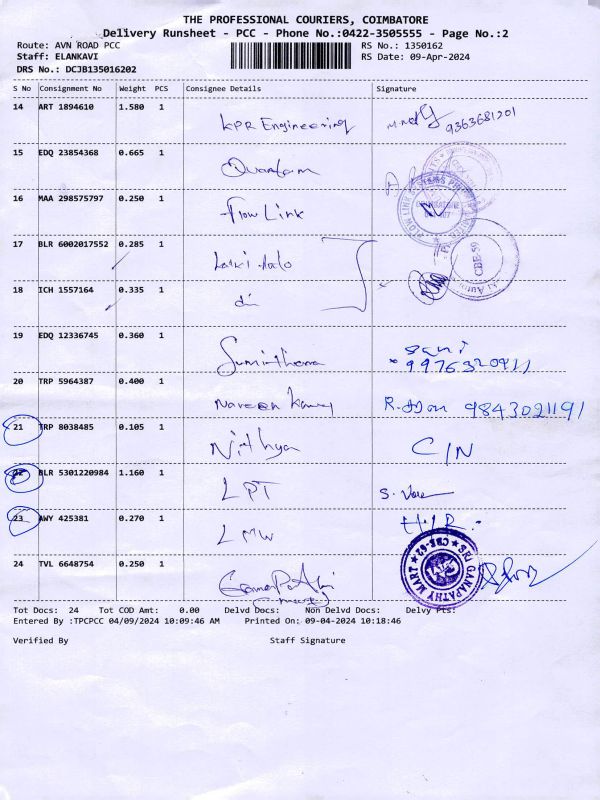 THE PROFESSIONAL COURIERS, COIMBATORE
Delivery Runsheet - PCC - Phone No.:0422-3505555 - Page No.:2
Route: AVN ROAD PCC RS No.: 1350162
Staff: ELANKAVI RS Date: 09-Apr-2024
DRS No.: DCJB135016202
S No Consignment No Weight PCS Consignee Details Signature
14 ART 1894610 1.580 1 KPR Engineering 9363681201
15 EDQ 23854368 0.665 1 Quantam
16 MAA 298575797 0.250 1 Flow Link
17 BLR 6002017552 0.285 1 CBE-59
18 ICH 1557164 0.335 1
19 EDQ 12336745 0.360 1
20 TRP 5964387 0.400 1 Naveen 9843021191
21 TRP 8038485 0.105 1 Nithya C/N
22 BLR 5301220984 1.160 1 LPT S.
23 AWY 425381 0.270 1 LMW
24 TVL 6648754 0.250 1 SRI GANAPATHY MART CBE-62
Tot Docs: 24 Tot COD Amt: 0.00 Delvd Docs: Non Delvd Docs: Delvy Pts:
Entered By :TPCPCC 04/09/2024 10:09:46 AM Printed On: 09-04-2024 10:18:46
Verified By Staff Signature